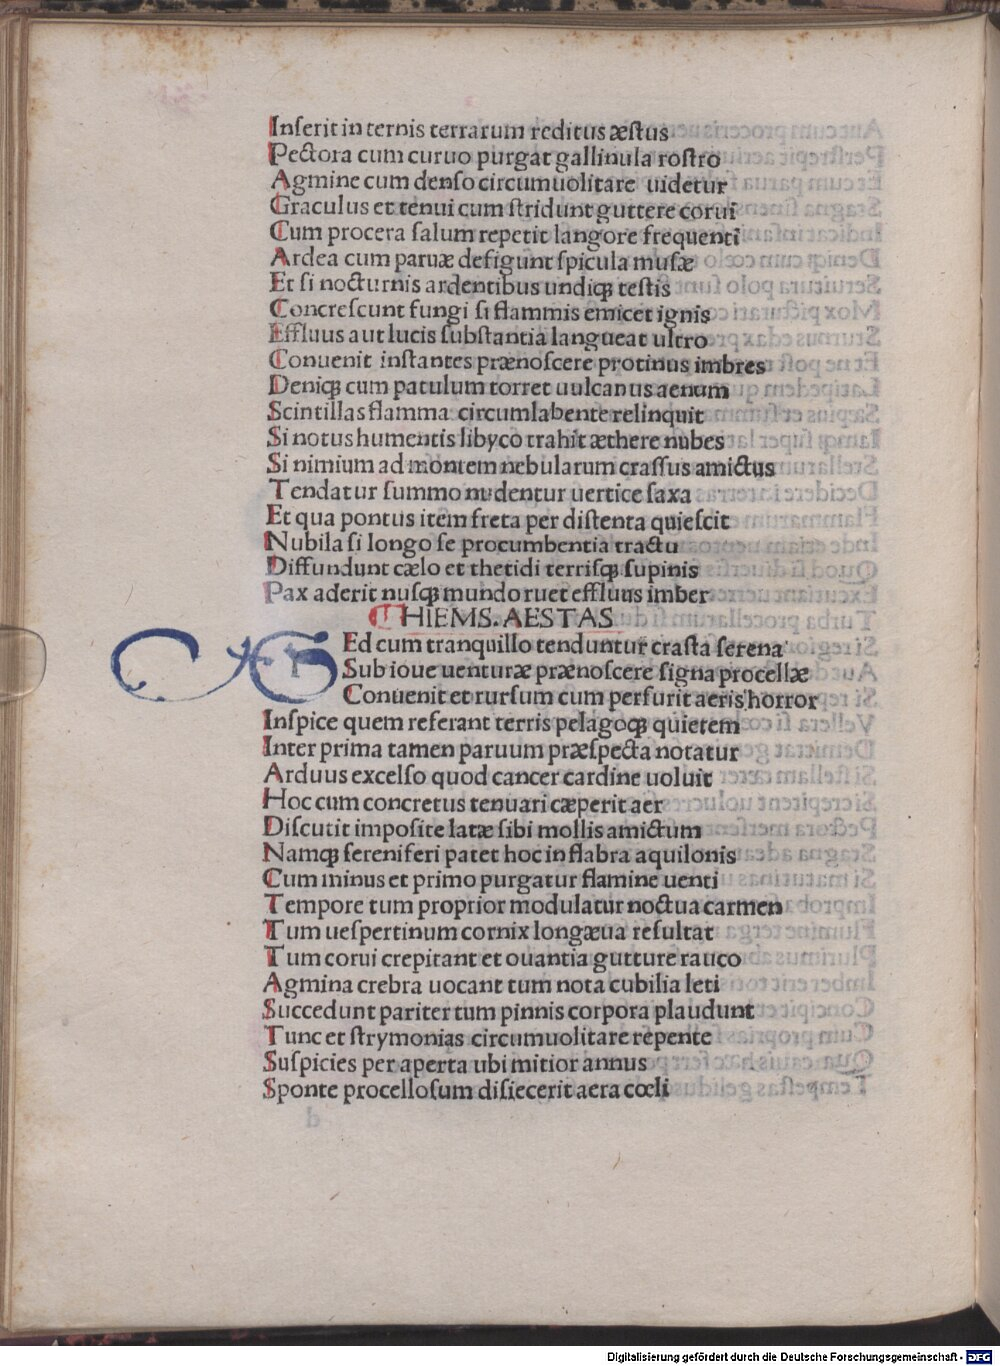 Inſerit in ternis terrarum reditus æſtus
Pectora cum curuo purgat gallinula roſtro
Agmine cum denſo circumuolitare uidetur
Graculus et tenui cum ſtridunt guttere corui
Cum procera ſalum repetit langore frequenti
Ardea cum paruæ defigunt ſpicula muſæ
Et ſi nocturnis ardentibus undiqꝫ teſtis
Concreſcunt fungi ſi flammis emicet ignis
Effluus aut lucis ſubſtantia langueat ultro
Conuenit inſtantes prænoſcere protinus imbres
Deniqꝫ cum patulum torret uulcanus aenum
Scintillas flamma circumlabente relinquit
Si notus humentis libyco trahit æthere nubes
Si nimium ad montem nebularum craſſus amictus
Tendatur ſummo nudentur uertice ſaxa
Et qua pontus item freta per diſtenta quieſcit
Nubila ſi longo ſe procumbentia tractu
Diffundunt cælo et thetidi terriſqꝫ ſupinis
Pax aderit nuſqꝫ mundo ruet effluus imber
HIEMS. AESTAS
Sed cum tranquillo tenduntur craſta ſerena
Sub ioue uenturæ prænoſcere ſigna procellæ
Conuenit et rurſum cum perfurit aeris horror
Inſpice quem referant terris pelagoqꝫ quietem
Inter prima tamen paruum præſpecta notatur
Arduus excelſo quod cancer cardine uoluit
Hoc cum concretus tenuari cæperit aer
Diſcutit impoſite latæ ſibi mollis amictum
Namqꝫ ſereniferi patet hoc in flabra aquilonis
Cum minus et primo purgatur flamine uenti
Tempore tum proprior modulatur noctua carmen
Tum ueſpertinum cornix longæua reſultat
Tum corui crepitant et ouantia gutture rauco
Agmina crebra uocant tum nota cubilia leti
Succedunt pariter tum pinnis corpora plaudunt
Tunc et ſtrymonias circumuolitare repente
Suſpicies per aperta ubi mitior annus
Sponte procelloſum diſiecerit aera cœli
Digitalisierung gefördert durch die Deutsche Forschungsgemeinschaft - DFG